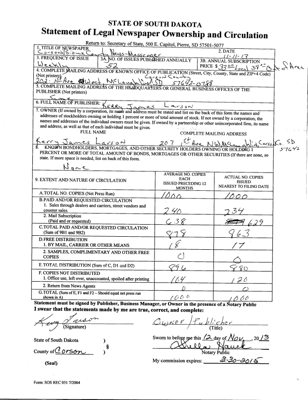 STATE OF SOUTH DAKOTA
Statement of Legal Newspaper Ownership and Circulation
Return to: Secretary of State, 500 E. Capitol, Pierre, SD 57501-5077
1. TITLE OF NEWSPAPER
2. DATE
3. FREQUENCY OF ISSUE
3A. NO. OF ISSUES PUBLISHED ANNUALLY
3B. ANNUAL SUBSCRIPTION
PRICE $
Weekly
52
4. COMPLETE MAILING ADDRESS OF KNOWN OFFICE OF PUBLICATION (Street, City, County, State and ZIP+4 Code)
(Not printers)
5. COMPLETE MAILING ADDRESS OF THE HEADQUARTERS OR GENERAL BUSINESS OFFICES OF THE
PUBLISHER (Not printers)
6. FULL NAME OF PUBLISHER:
Kerry James Larson
7. OWNER (If owned by a corporation, its name and address must be stated and also immediately thereunder the names and
addresses of stockholders owning or holding 1 percent or more of total amount of stock. If not owned by a corporation, the
names and addresses of the individual owners must be given. If owned by a partnership or other unincorporated firm, its name
and address, as well as that of each individual must be given.
FULL NAME
COMPLETE MAILING ADDRESS
Kerry James Larson
SD
57642
8. KNOWN BONDHOLDERS, MORTGAGES, AND OTHER SECURITY HOLDERS OWNING OR HOLDING 1
PERCENT OR MORE OF TOTAL AMOUNT OF BONDS, MORTGAGES OR OTHER SECURITIES (If there are none, so
state. If more space is needed, list on back of this form.
None
9. EXTENT AND NATURE OF CIRCULATION
AVERAGE NO. COPIES
EACH
ISSUED PRECEDING 12
MONTHS
ACTUAL NO. COPIES
ISSUED
NEAREST TO FILING DATE
A. TOTAL NO. COPIES (Net Press Run)
1000
1000
B. PAID AND/OR REQUESTED CIRCULATION
1. Sales through dealers and carriers, street vendors and
counter sales
240
234
2. Mail Subscription
(Paid and or requested)
638
629
C. TOTAL PAID AND/OR REQUESTED CIRCULATION
(Sum of 9B1 and 9B2)
878
863
D. FREE DISTRIBUTION
1. BY MAIL, CARRIER OR OTHER MEANS
18
17
2. SAMPLES, COMPLIMENTARY AND OTHER FREE
COPIES
0
0
E. TOTAL DISTRIBUTION (Sum of C, D1 and D2)
896
880
F. COPIES NOT DISTRIBUTED
1. Office use, left over, unaccounted, spoiled after printing
104
120
2. Return from News Agents
0
0
G. TOTAL (Sum of E, F1 and F2 – Should equal net press run
shown in A)
1000
1000
Statement must be signed by Publisher, Business Manager, or Owner in the presence of a Notary Public
I swear that the statements made by me are true, correct, and complete:
(Signature)
Owner / Publisher
(Title)
State of South Dakota )
Sworn to before me this 12 day of Nov, 20
County of Corson )
Notary Public
(Seal)
My commission expires:
Form: SOS REC 051 7/2004